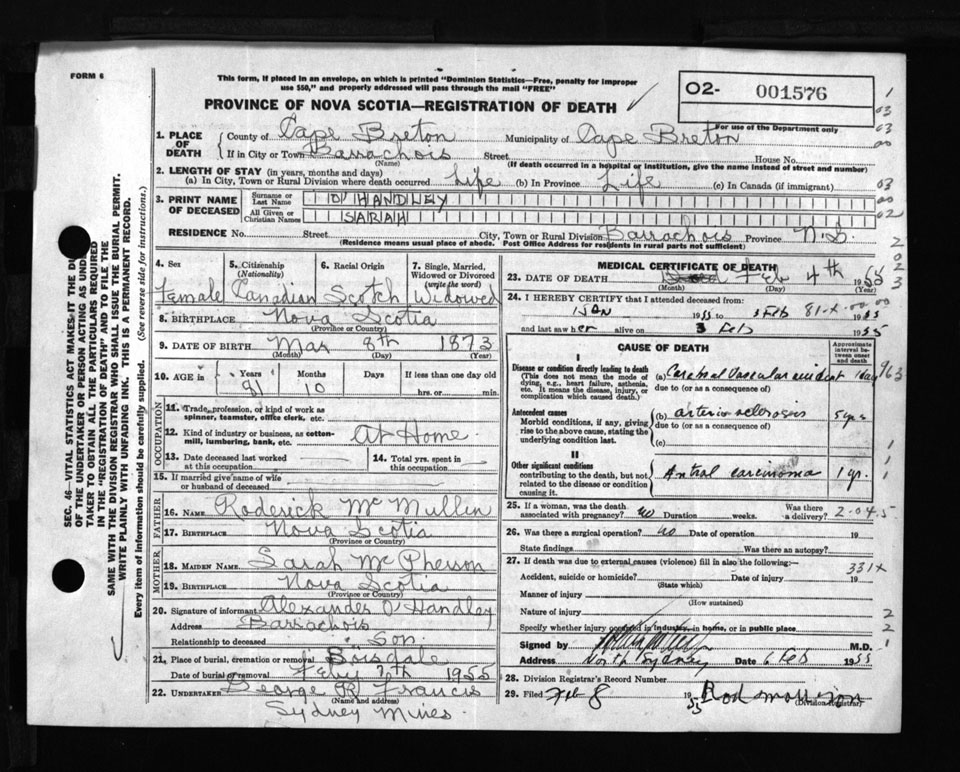 FORM 6
This form, if placed in an envelope, on which is printed "Dominion Statistics—Free, penalty for improper
use $50," and properly addressed will pass through the mail "FREE"
PROVINCE OF NOVA SCOTIA—REGISTRATION OF DEATH
02- 001576
For use of the Department only
1. PLACE OF DEATH County of Cape Breton Municipality of Cape Breton
If in City or Town Barrachois Street House No.
(Name) (If death occurred in a hospital or institution, give the name instead of street and number)
2. LENGTH OF STAY (in years, months and days)
(a) In City, Town or Rural Division where death occurred Life (b) In Province Life (c) In Canada (if immigrant)
3. PRINT NAME OF DECEASED Surname or Last Name O'HANDLEY
All Given or Christian Names SARAH
RESIDENCE No. Street City, Town or Rural Division Barrachois Province N.S.
(Residence means usual place of abode. Post Office Address for residents in rural parts not sufficient)
4. Sex 5. Citizenship (Nationality) 6. Racial Origin 7. Single, Married, Widowed or Divorced (write the word)
Female Canadian Scotch Widowed
8. BIRTHPLACE Nova Scotia
(Province or Country)
9. DATE OF BIRTH Mar 8th 1873
(Month) (Day) (Year)
10. AGE in Years Months Days If less than one day old
81 10 hrs. or min.
OCCUPATION
11. Trade, profession, or kind of work as spinner, teamster, office clerk, etc.
12. Kind of industry or business, as cotton-mill, lumbering, bank, etc. At Home
13. Date deceased last worked at this occupation 14. Total yrs. spent in this occupation
15. If married give name of wife or husband of deceased
FATHER
16. NAME Roderick McMullin
17. BIRTHPLACE Nova Scotia
(Province or Country)
MOTHER
18. MAIDEN NAME Sarah McPherson
19. BIRTHPLACE Nova Scotia
(Province or Country)
20. Signature of informant Alexander O'Handley
Address Barrachois
Relationship to deceased Son
21. Place of burial, cremation or removal Boisdale
Date of burial or removal Feby 7th 1955
22. UNDERTAKER George R. Francis
(Name and address)
Sydney Mines
MEDICAL CERTIFICATE OF DEATH
23. DATE OF DEATH Feb 4th 1955
(Month) (Day) (Year)
24. I HEREBY CERTIFY that I attended deceased from
Nov 1955 3 Feb 1955
and last saw her alive on 3 Feb 1955
CAUSE OF DEATH
Approximate interval between onset and death
I
Disease or condition directly leading to death
(This does not mean the mode of dying, e.g., heart failure, asthenia, etc. It means the disease, injury, or complication which caused death.)
(a) Cerebral Vascular accident 1 day
due to (or as a consequence of)
Antecedent causes
Morbid conditions, if any, giving rise to the above cause, stating the underlying condition last.
(b) arteriosclerosis 5 yrs
due to (or as a consequence of)
(c)
II
Other significant conditions
contributing to the death, but not related to the disease or condition causing it.
Antral carcinoma 1 yr.
25. If a woman, was the death associated with pregnancy? no Duration weeks. Was there a delivery? 2-045
26. Was there a surgical operation? no Date of operation 19
State findings Was there an autopsy?
27. If death was due to external causes (violence) fill in also the following:— 331x
Accident, suicide or homicide? Date of injury 19
(State which)
Manner of injury
(How sustained)
Nature of injury
Specify whether injury occurred in industry, in home, or in public place
Signed by M.D.
Address North Sydney Date 6 Feb 1955
28. Division Registrar's Record Number
29. Filed Feb 8 1955 Rod Morrison
(Division Registrar)
SEC. 46—VITAL STATISTICS ACT MAKES IT THE
OF THE UNDERTAKER OR PERSON ACTING AS
TAKER TO OBTAIN ALL THE PARTICULARS REQUIRED
IN THE "REGISTRATION OF DEATH" AND TO FILE THE
SAME WITH THE DIVISION REGISTRAR WHO SHALL ISSUE THE BURIAL PERMIT.
WRITE PLAINLY WITH UNFADING INK. THIS IS A PERMANENT RECORD.
Every item of information should be carefully supplied. (See reverse side for instructions.)